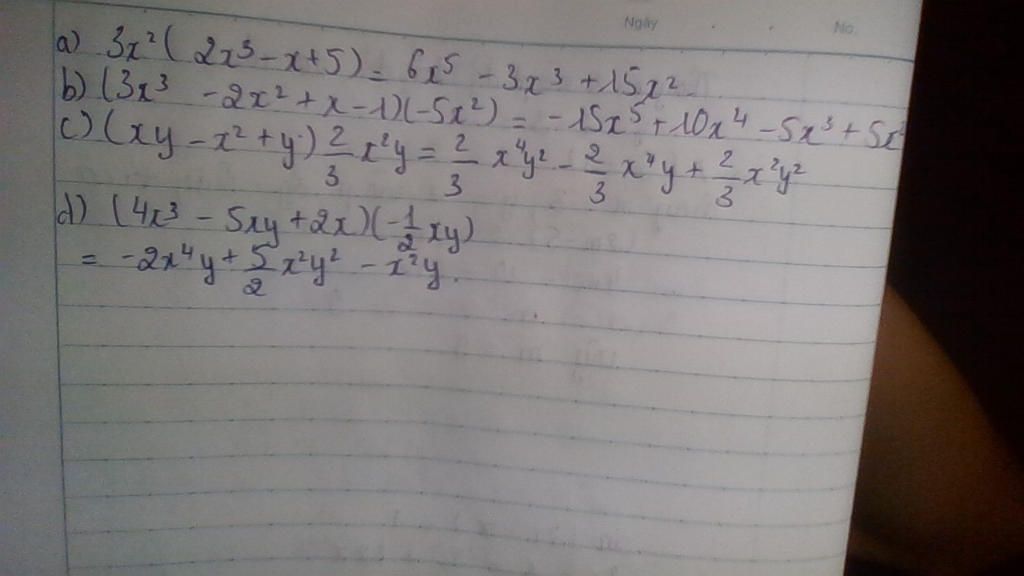 Ngày No.
a) 3x²( 2x³ - x + 5) = 6x⁵ - 3x³ + 15x²
b) (3x³ - 2x² + x - 1)(-5x²) = -15x⁵ + 10x⁴ - 5x³ + 5x²
c) (xy - x² + y) 2/3 x²y = 2/3 x⁴y² - 2/3 x⁴y + 2/3 x²y²
d) (4x³ - 5xy + 2x)(-1/2 xy)
= -2x⁴y + 5/2 x²y² - x²y.